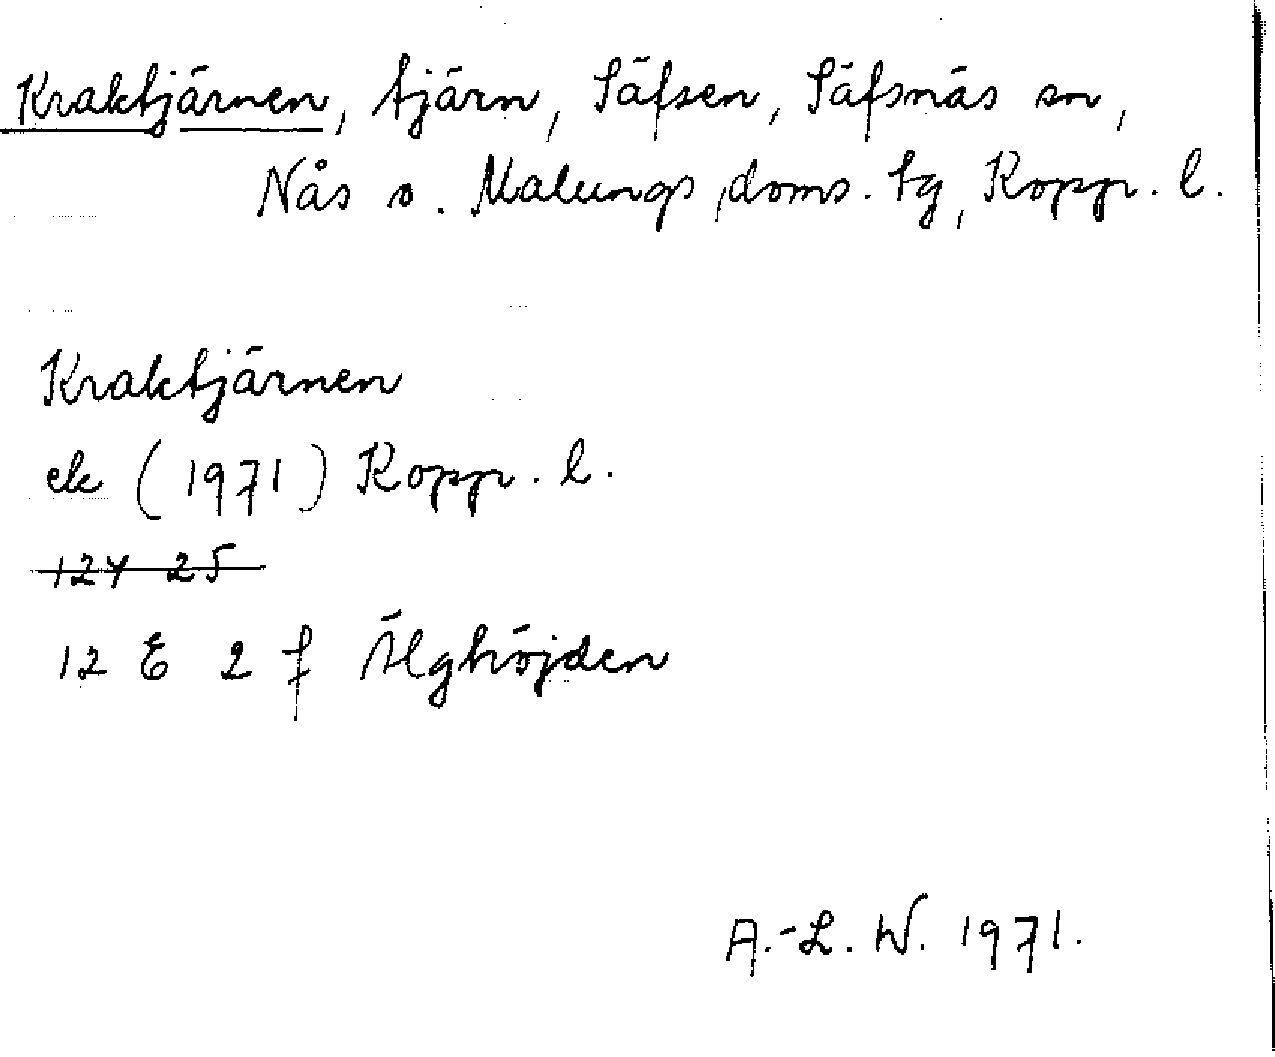 Kraktjärnen, tjärn, Säfsen, Säfsnäs sn,
Nås o. Malungs doms. tg, Kopp. l.
Kraktjärnen
ek (1971) Kopp. l.
124 25
12 E 2 f Älghöjden
A.-L. W. 1971.